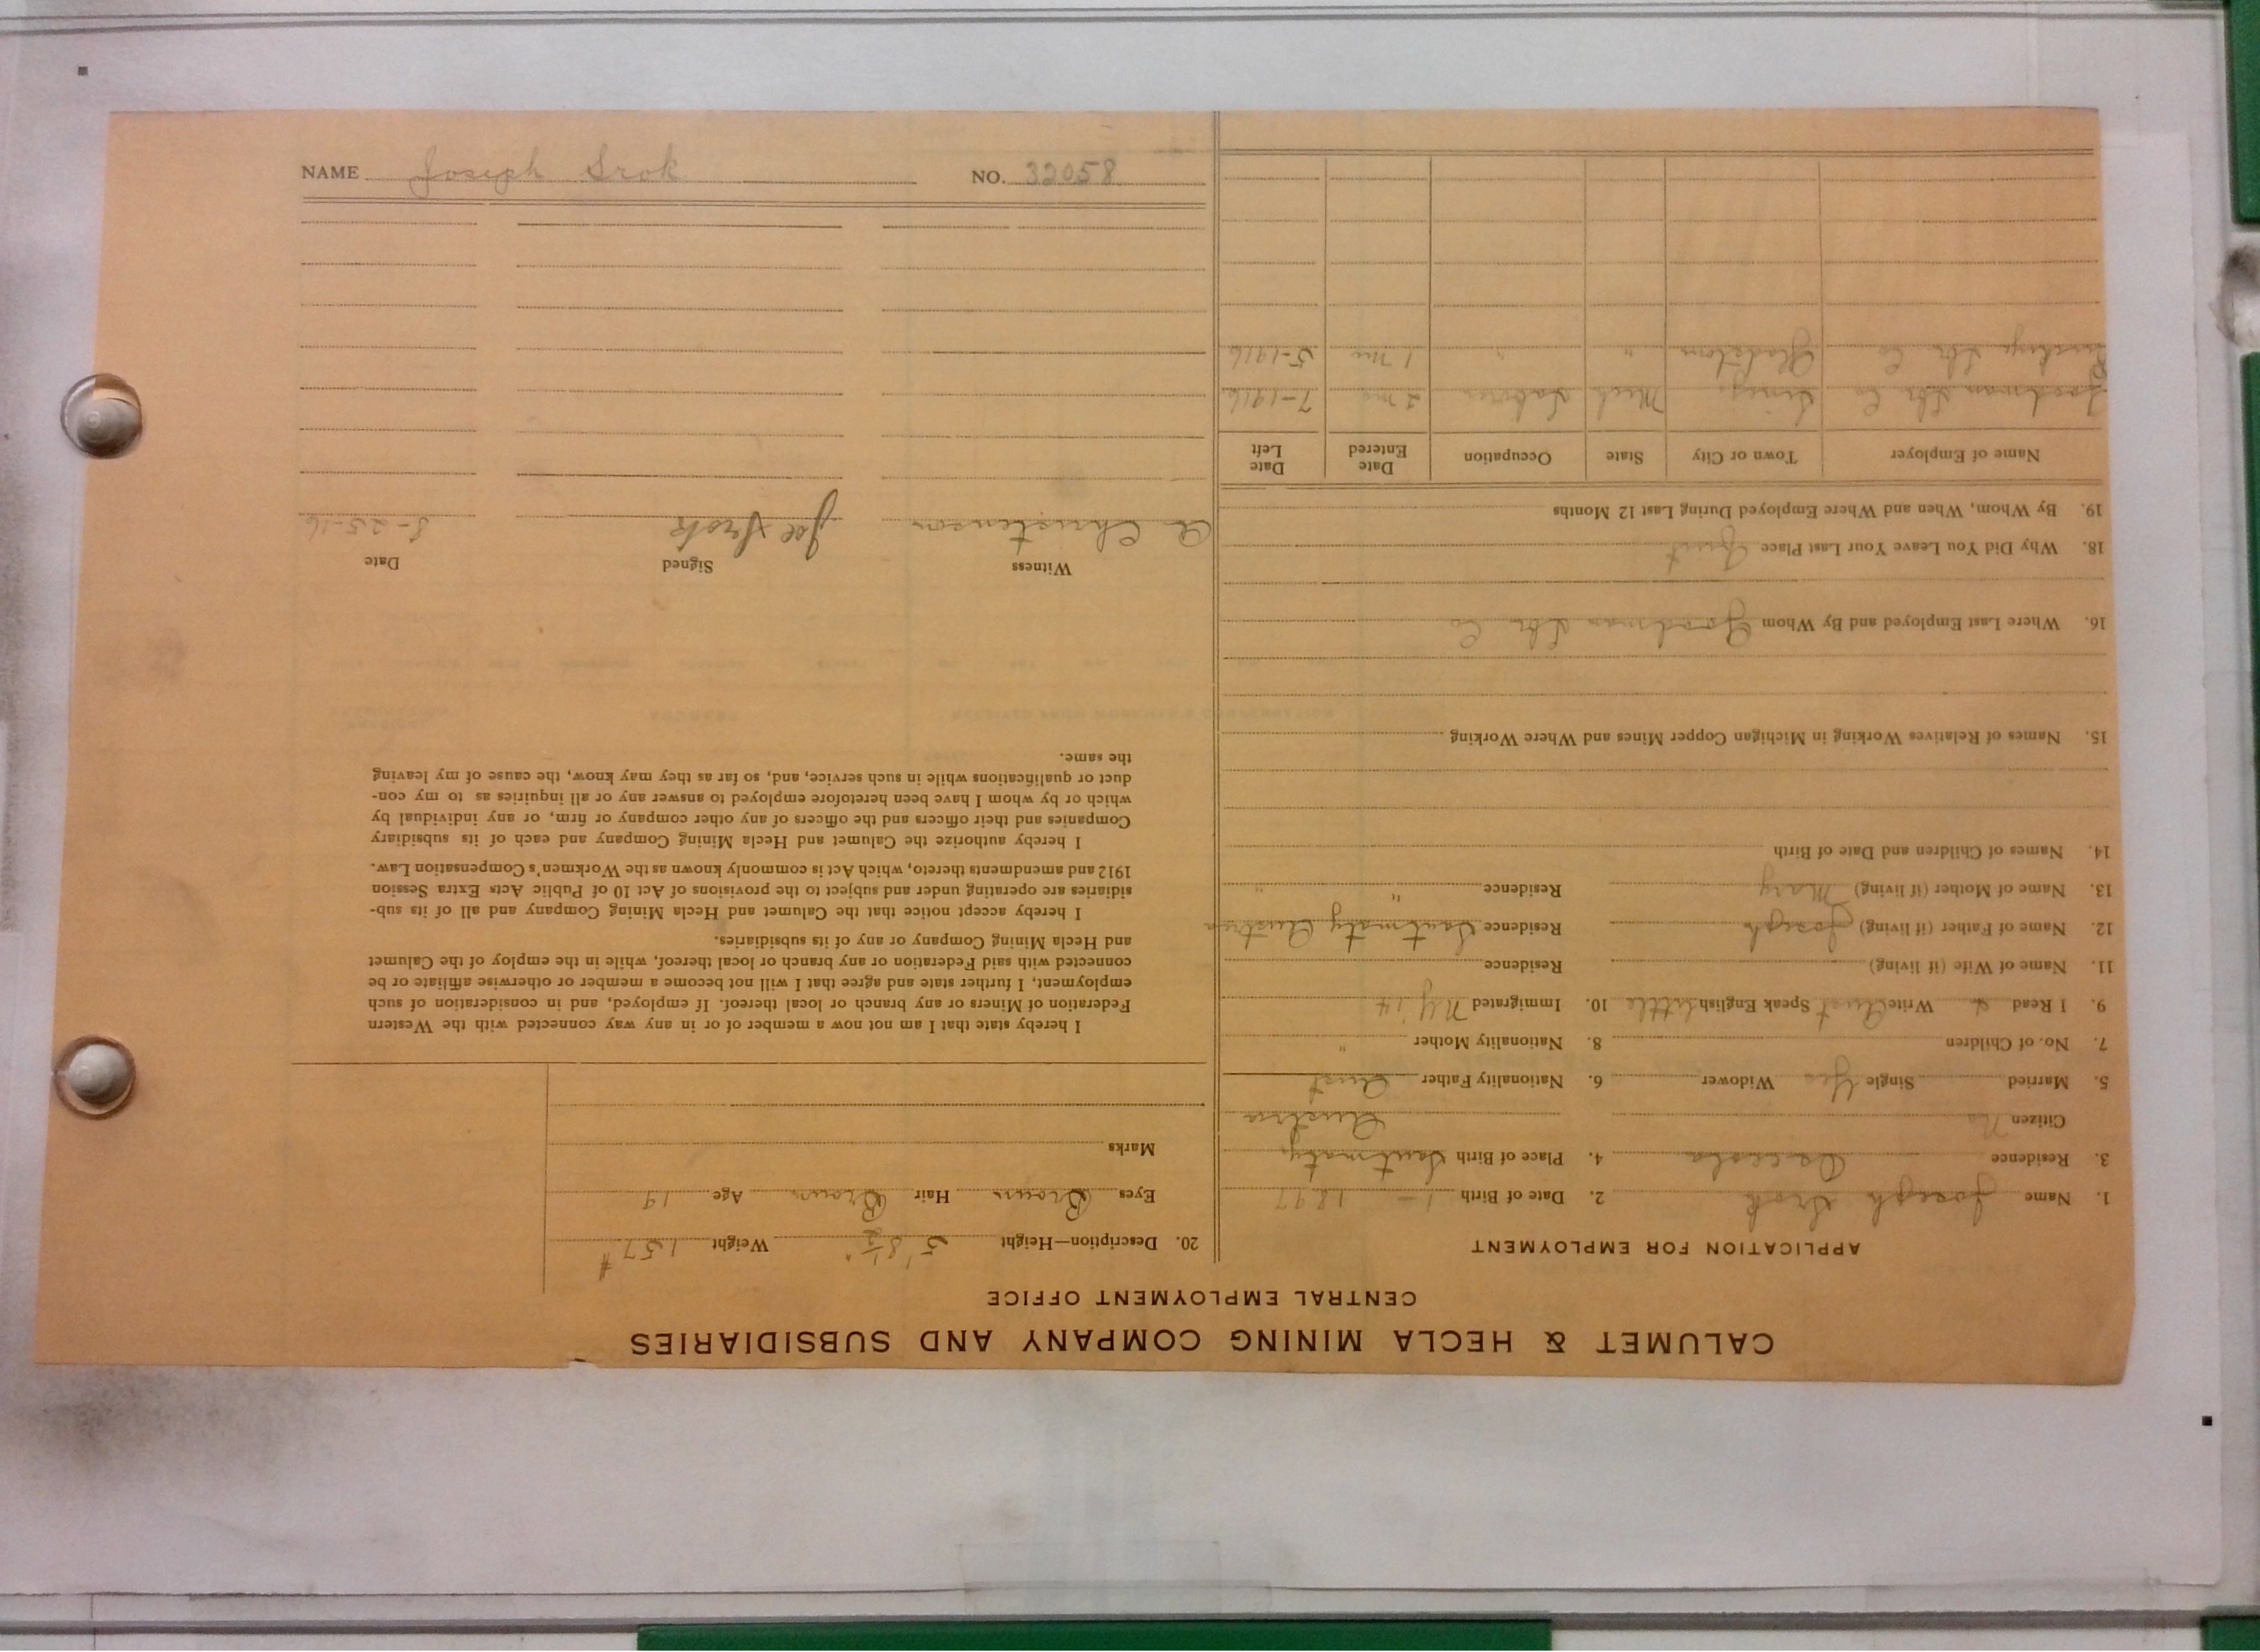 NAME Joseph Srok NO. 32058
CALUMET & HECLA MINING COMPANY AND SUBSIDIARIES
CENTRAL EMPLOYMENT OFFICE
APPLICATION FOR EMPLOYMENT
1. Name Joseph Srok 2. Date of Birth 1 - 1897
3. Residence Osceola 4. Place of Birth
Citizen No Austria
5. Married Single Yes Widower 6. Nationality Father Aust
7. No. of Children 8. Nationality Mother "
9. I Read & Write Aust Speak English Little 10. Immigrated NY 14
11. Name of Wife (if living) Residence
12. Name of Father (if living) Joseph Residence Austria
13. Name of Mother (if living) Mary Residence " "
14. Names of Children and Date of Birth
15. Names of Relatives Working in Michigan Copper Mines and Where Working
16. Where Last Employed and By Whom Goodman Lbr Co
18. Why Did You Leave Your Last Place Quit
19. By Whom, When and Where Employed During Last 12 Months
Name of Employer Town or City State Occupation Date Entered Date Left
Goodman Lbr Co Mich Laborer 2 mo 7-1916
Lbr Co Gladstone " " 1 mo 5-1916
20. Description—Height 5' 8 1/2" Weight 157 #
Eyes Brown Hair Brown Age 19
Marks
I hereby state that I am not now a member of or in any way connected with the Western
Federation of Miners or any branch or local thereof. If employed, and in consideration of such
employment, I further state and agree that I will not become a member or otherwise affiliate or be
connected with said Federation or any branch or local thereof, while in the employ of the Calumet
and Hecla Mining Company or any of its subsidiaries.
I hereby accept notice that the Calumet and Hecla Mining Company and all of its sub-
sidiaries are operating under and subject to the provisions of Act 10 of Public Acts Extra Session
1912 and amendments thereto, which Act is commonly known as the Workmen's Compensation Law.
I hereby authorize the Calumet and Hecla Mining Company and each of its subsidiary
Companies and their officers and the officers of any other company or firm, or any individual by
which or by whom I have been heretofore employed to answer any or all inquiries as to my con-
duct or qualifications while in such service, and, so far as they may know, the cause of my leaving
the same.
Witness Signed Date
A Christenson Joe Srok 8-25-16